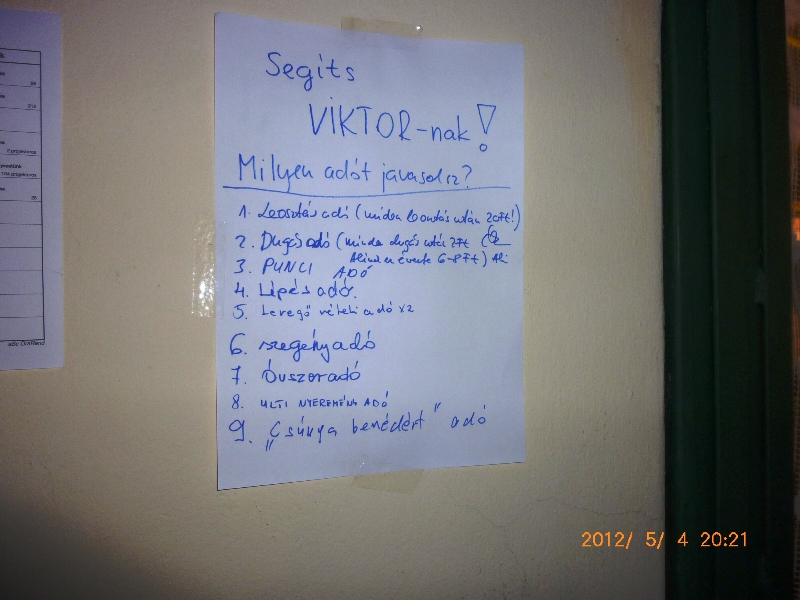 Segíts
VIKTOR-nak!
Milyen adót javasolsz?
1. adó (minden után 20Ft!)
2. Dugás adó (minden dugás után 7Ft
évente 6-8 Ft)
3. PUNCI ADÓ
4. Lépés adó.
5. Levegő vételi adó x2
6. szegényadó
7. Óvszeradó
8. ULTI NYEREMÉNY ADÓ
9. „Csúnya beszédért" adó
2012/ 5/ 4 20:21